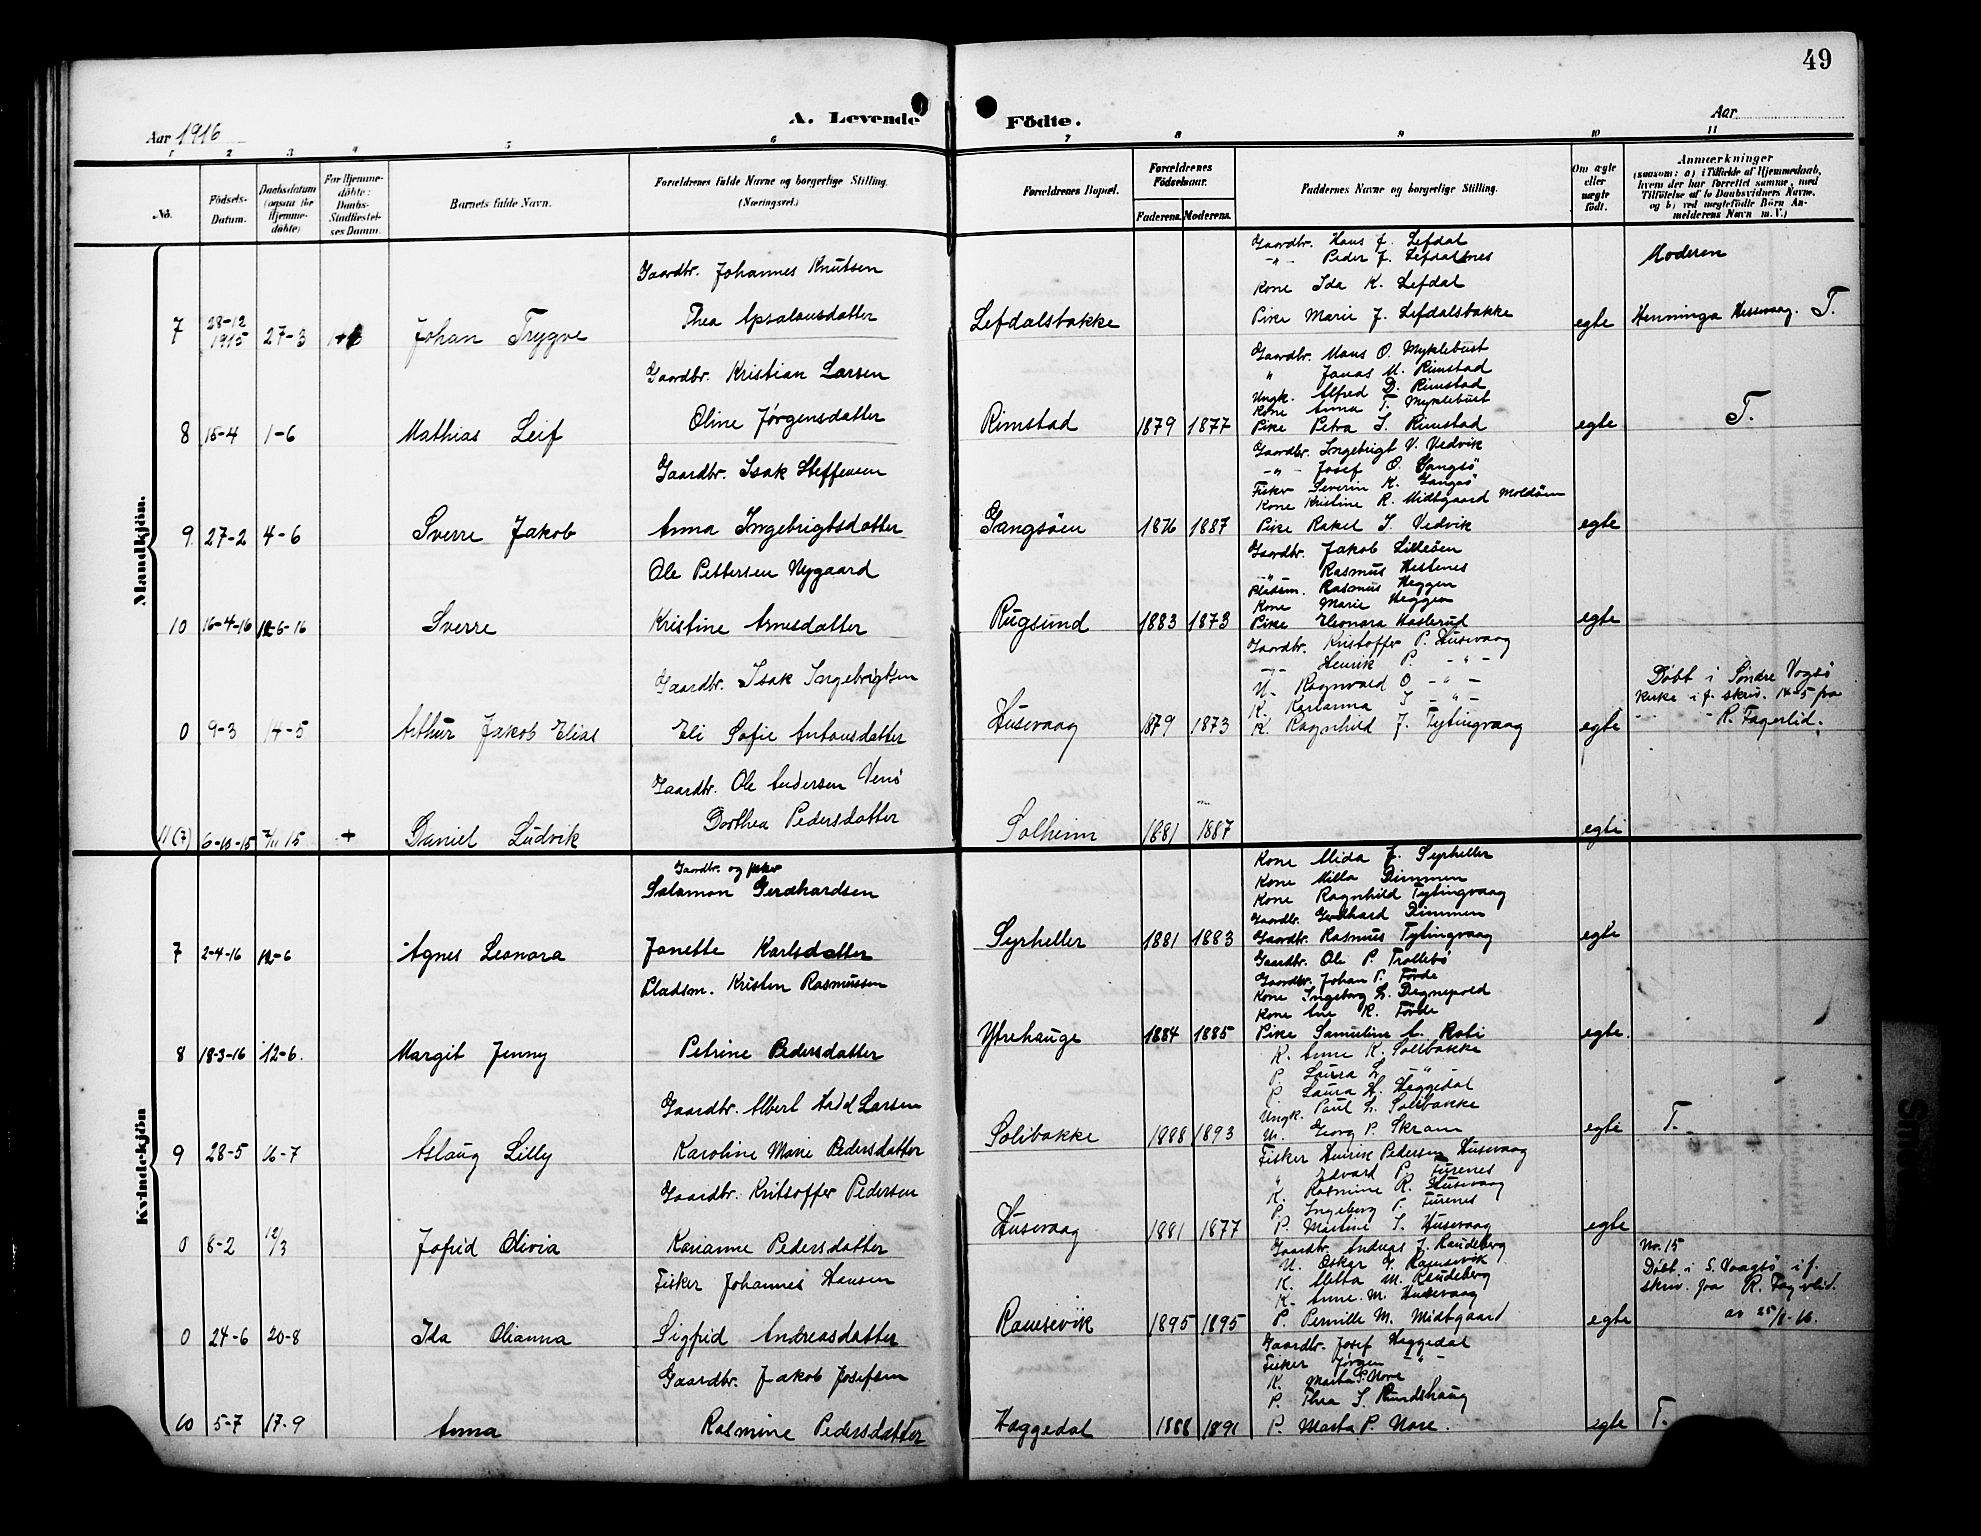 49
Aar 1916
A. Levende Födte.
Aar
1 2 3 4 5 6 7 8 9 10 11
No.
Födsels-Datum.
Daabsdatum (ogsaa for Hjemmedöbte)
For Hjemmedöbte: Daabs-Stadfæstelses Datum.
Barnets fulde Navn.
Forældrenes fulde Navne og borgerlige Stilling. (Næringsvei.)
Forældrenes Bopæl.
Forældrenes Födselsaar.
Faderens. Moderens.
Faddernes Navne og borgerlige Stilling.
Om ægte eller uægte født.
Anmærkninger
(saasom: a) i Tilfælde af Hjemmedaab, hvem der har forrettet samme, med Tilföielse af to Daabsvidners Navne, og b) ved uægtefödte Börn Anmelderens Navn m. V.)
Mandkjön.
Gaardbr. Johannes Knutsen
Gaardbr. Hans J. Lefdal
-"- Peder J. Lefdalsnes
Kone Ida K. Lefdal
Moderen
7 28-12 1915 27-3 Johan Trygve
Thea Apsalonsdatter
Lefdalsbakke
Pike Marie J. Lefdalsbakke
egte
Henninga Hessevaag. T.
Gaardbr. Kristian Larsen
Gaardbr. Mons O. Myklebust
" Jonas M. Rimstad
Ungk. Alfred D. Rimstad
Kone Anna T. Myklebust
8 15-4 1-6 Mathias Leif
Oline Jørgensdatter
Rimstad 1879 1877
Pike Petra S. Rimstad
egte T.
Gaardbr. Isak Steffensen
Gaardbr. Ingebrigt V. Vedvik
-"- Josef O. Gangsö
Fisker Severin K. Gangsö
Kone Kristine R. Midtgaard Moldöen
9. 27-2 4-6 Sverre Jakob
Anna Ingebrigtsdatter
Gangsöen 1876 1887
Pike Rakel I. Vedvik
egte
Ole Pettersen Nygaard
Gaardbr. Jakob Lillesöen
-"- Rasmus Hestenes
Pladsm. Rasmus Heggen
Kone Marie Heggen
10 16-4-16 12-6-16 Sverre
Kristine Arnesdatter
Rugsund 1883 1873
Pike Eleonora Haslerud
egte
Gaardbr. Isak Ingebrigtsen
Gaardbr. Kristoffer P. Husevaag
-"- Henrik P. -"-
U. Ragnvald O -"-
K. Karianna I -"-
Döbt i Søndre Vagsö
Kirke i f. skriv. 14-5 fra
R. Fagerlid.
0 9-3 14-5 Arthur Jakob Elias
Eli Sofie Antonsdatter
Husevaag 1879 1873
K. Ragnhild J. Tytingvaag
egte
Gaardbr. Ole Andersen Venö
11(7) 6-10-15 7/11 15 + Daniel Ludvik
Dorthea Pedersdatter
Solheim 1881 1887
egte
Kvindekjön
Gaardbr. og fisker
Salamon Gerdhardsen
Kone Alida J. Syrheller
Kone Milla Dimmen
Kone Ragnhild Tytingvaag
Gaardbr. Gerdhard Dimmen
7 2-4-16 12-6 Agnes Leonora
Janette Karlsdatter
Syrheller 1881 1883
Gaardbr. Rasmus Tytingvaag
egte
Pladsm. Kristen Rasmussen
Gaardbr. Ole P. Trollebö
Gaardbr. Johan P. Förde
Kone Ingeborg L. Degnepold
Kone Ane R. Förde
8 18-3-16 12-6. Margit Jenny
Petrine Pedersdatter
Ytrehauge 1884 1885
Pike Samueline A. Robi
egte.
Gaardbr. Albert Larsen
K. Anne K. Solibakke
P. Laura L. -"-
P. Laura H. Heggedal
Ungk. Paul L. Solibakke
9 28-5 16-7 Aslaug Lilly
Karoline Marie Pedersdatter
Solibakke 1888 1893
U. Georg P. Skram
egte T.
Gaardbr. Kritsoffer Pedersen
Fisker Henrik Pedersen Husevaag
" Edvard P. Furenes
K. Rasmine R. Husevaag
P. Ingeborg P. Furenes
0 8-2 12/3 Jofrid Olivia
Karianne Pedersdatter
Husevaag 1881 1877
P. Martine S. Husevaag
egte
Fisker Johannes Hansen
Gaardbr. Andreas J. Raudeberg
U. Oskar G. Ramsevik
K. Aletta M. Raudeberg
K. Anne M. Husevaag
No. 15
Döbt i S. Vaagsö i f.
skriv. fra R. Fagerlid.
av 25/8-16.
0 24-6 20-8 Ida Olianna
Sigfrid Andreasdatter
Ramsevik 1895 1895
P. Pernille M. Midtgaard
egte
Gaardbr. Jakob Josefsen
Gaardbr. Josef Heggedal
Fisker Jörgen -"-
K. Marta P. Nore
P. Thea S. Rundshaug
10 5-7 17-9 Anna
Rasmine Pedersdatter
Haggedal 1888 1891
P. Marta P. Nore.
egte T.